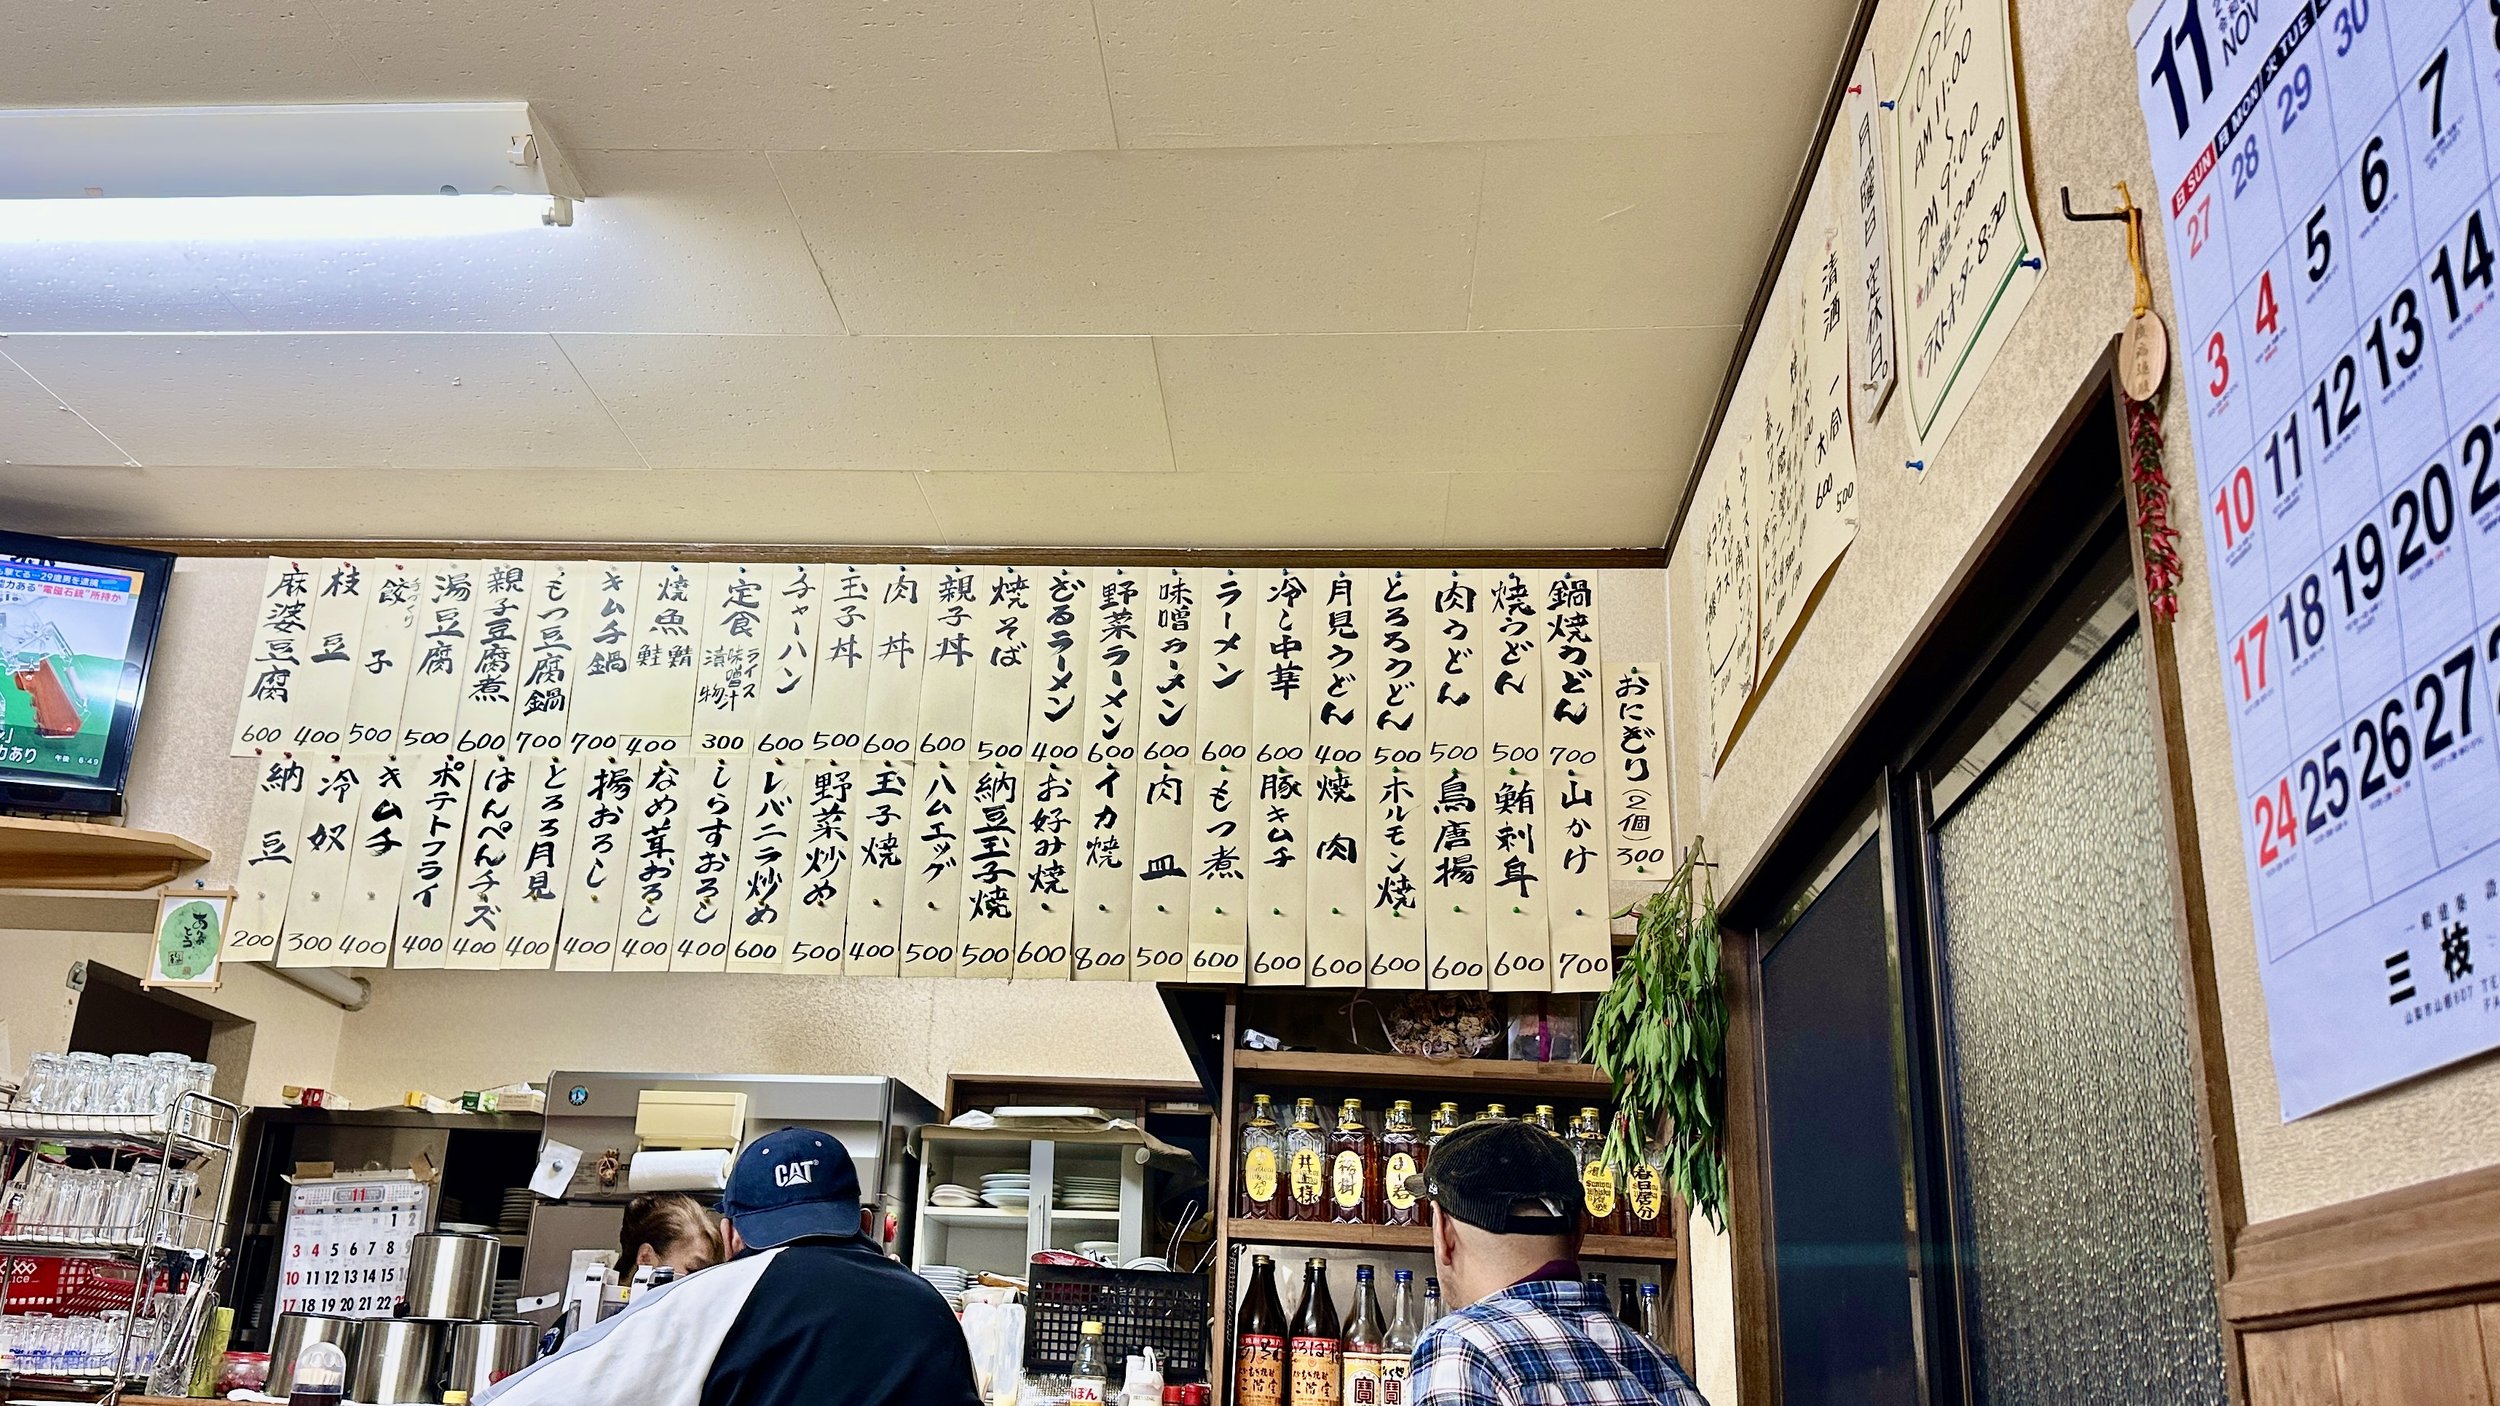 鍋焼うどん 700
焼うどん 500
肉うどん 500
とろろうどん 500
月見うどん 400
冷し中華 600
ラーメン 600
味噌ラーメン 600
野菜ラーメン 600
ざるラーメン 400
焼そば 500
親子丼 600
肉丼 600
玉子丼 500
チャーハン 600
定食 ライス 味噌汁 漬物 300
焼魚 鯖 鮭 400
キムチ鍋 700
もつ豆腐鍋 700
親子豆腐煮 600
湯豆腐 500
手づくり 餃子 500
枝豆 400
麻婆豆腐 600
おにぎり(2個) 300
山かけ 700
鮪刺身 600
鳥唐揚 600
ホルモン焼 600
焼肉 600
豚キムチ 600
もつ煮 600
肉皿 500
イカ焼 800
お好み焼 600
納豆玉子焼 500
ハムエッグ 500
玉子焼 400
野菜炒め 500
レバニラ炒め 600
しらすおろし 400
なめ茸おろし 400
揚おろし 400
とろろ月見 400
はんぺんチーズ 400
ポテトフライ 400
キムチ 400
冷奴 300
納豆 200
OPEN
AM 11:00
〜
PM 9:00
休憩 2:00-5:00
ラストオーダー 8:30
月曜日 定休日。
清酒 一合 500
(大) 600
11
NOV
日 SUN 月 MON 火 TUE
27 28 29 30
3 4 5 6 7
10 11 12 13 14
17 18 19 20
24 25 26 27
三枝
午後 6:49
ありがとう
CAT
11
1 2
3 4 5 6 7 8 9
10 11 12 13 14 15
17 18 19 20 21 22
井上様
祐樹
春日居分
二階堂
寶
寶